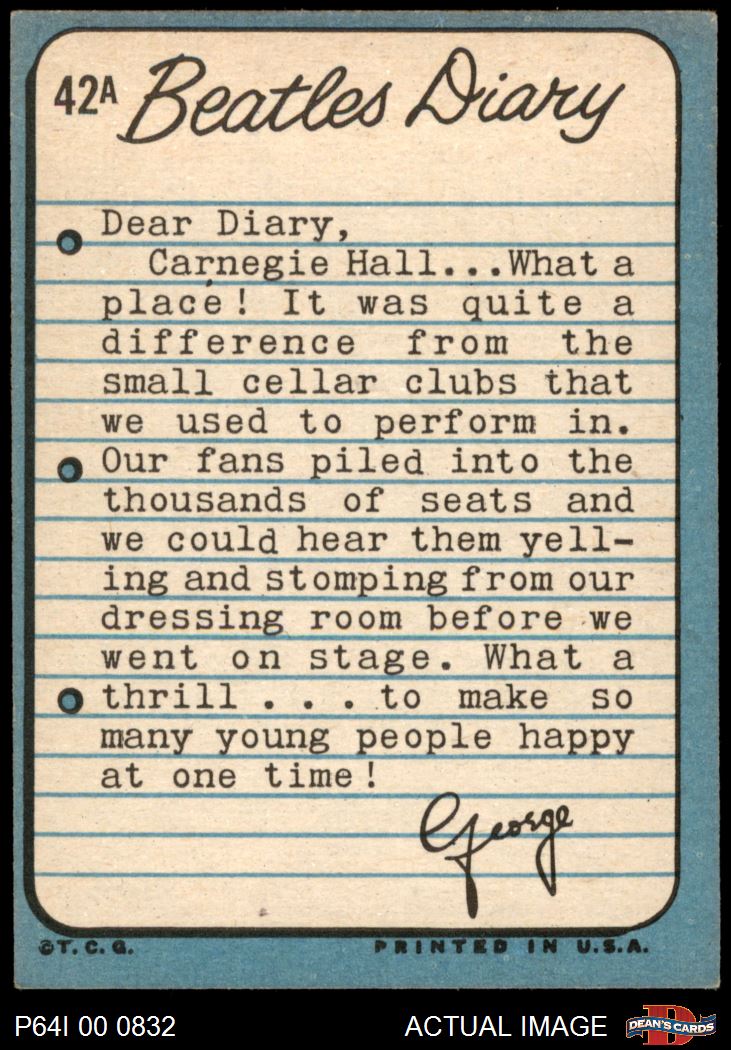 42A Beatles Diary
Dear Diary,
Carnegie Hall...What a
place! It was quite a
difference from the
small cellar clubs that
we used to perform in.
Our fans piled into the
thousands of seats and
we could hear them yell-
ing and stomping from our
dressing room before we
went on stage. What a
thrill . . . to make so
many young people happy
at one time!
George
©T.C.G. PRINTED IN U.S.A.
P64I 00 0832 ACTUAL IMAGE DEAN'S CARDS